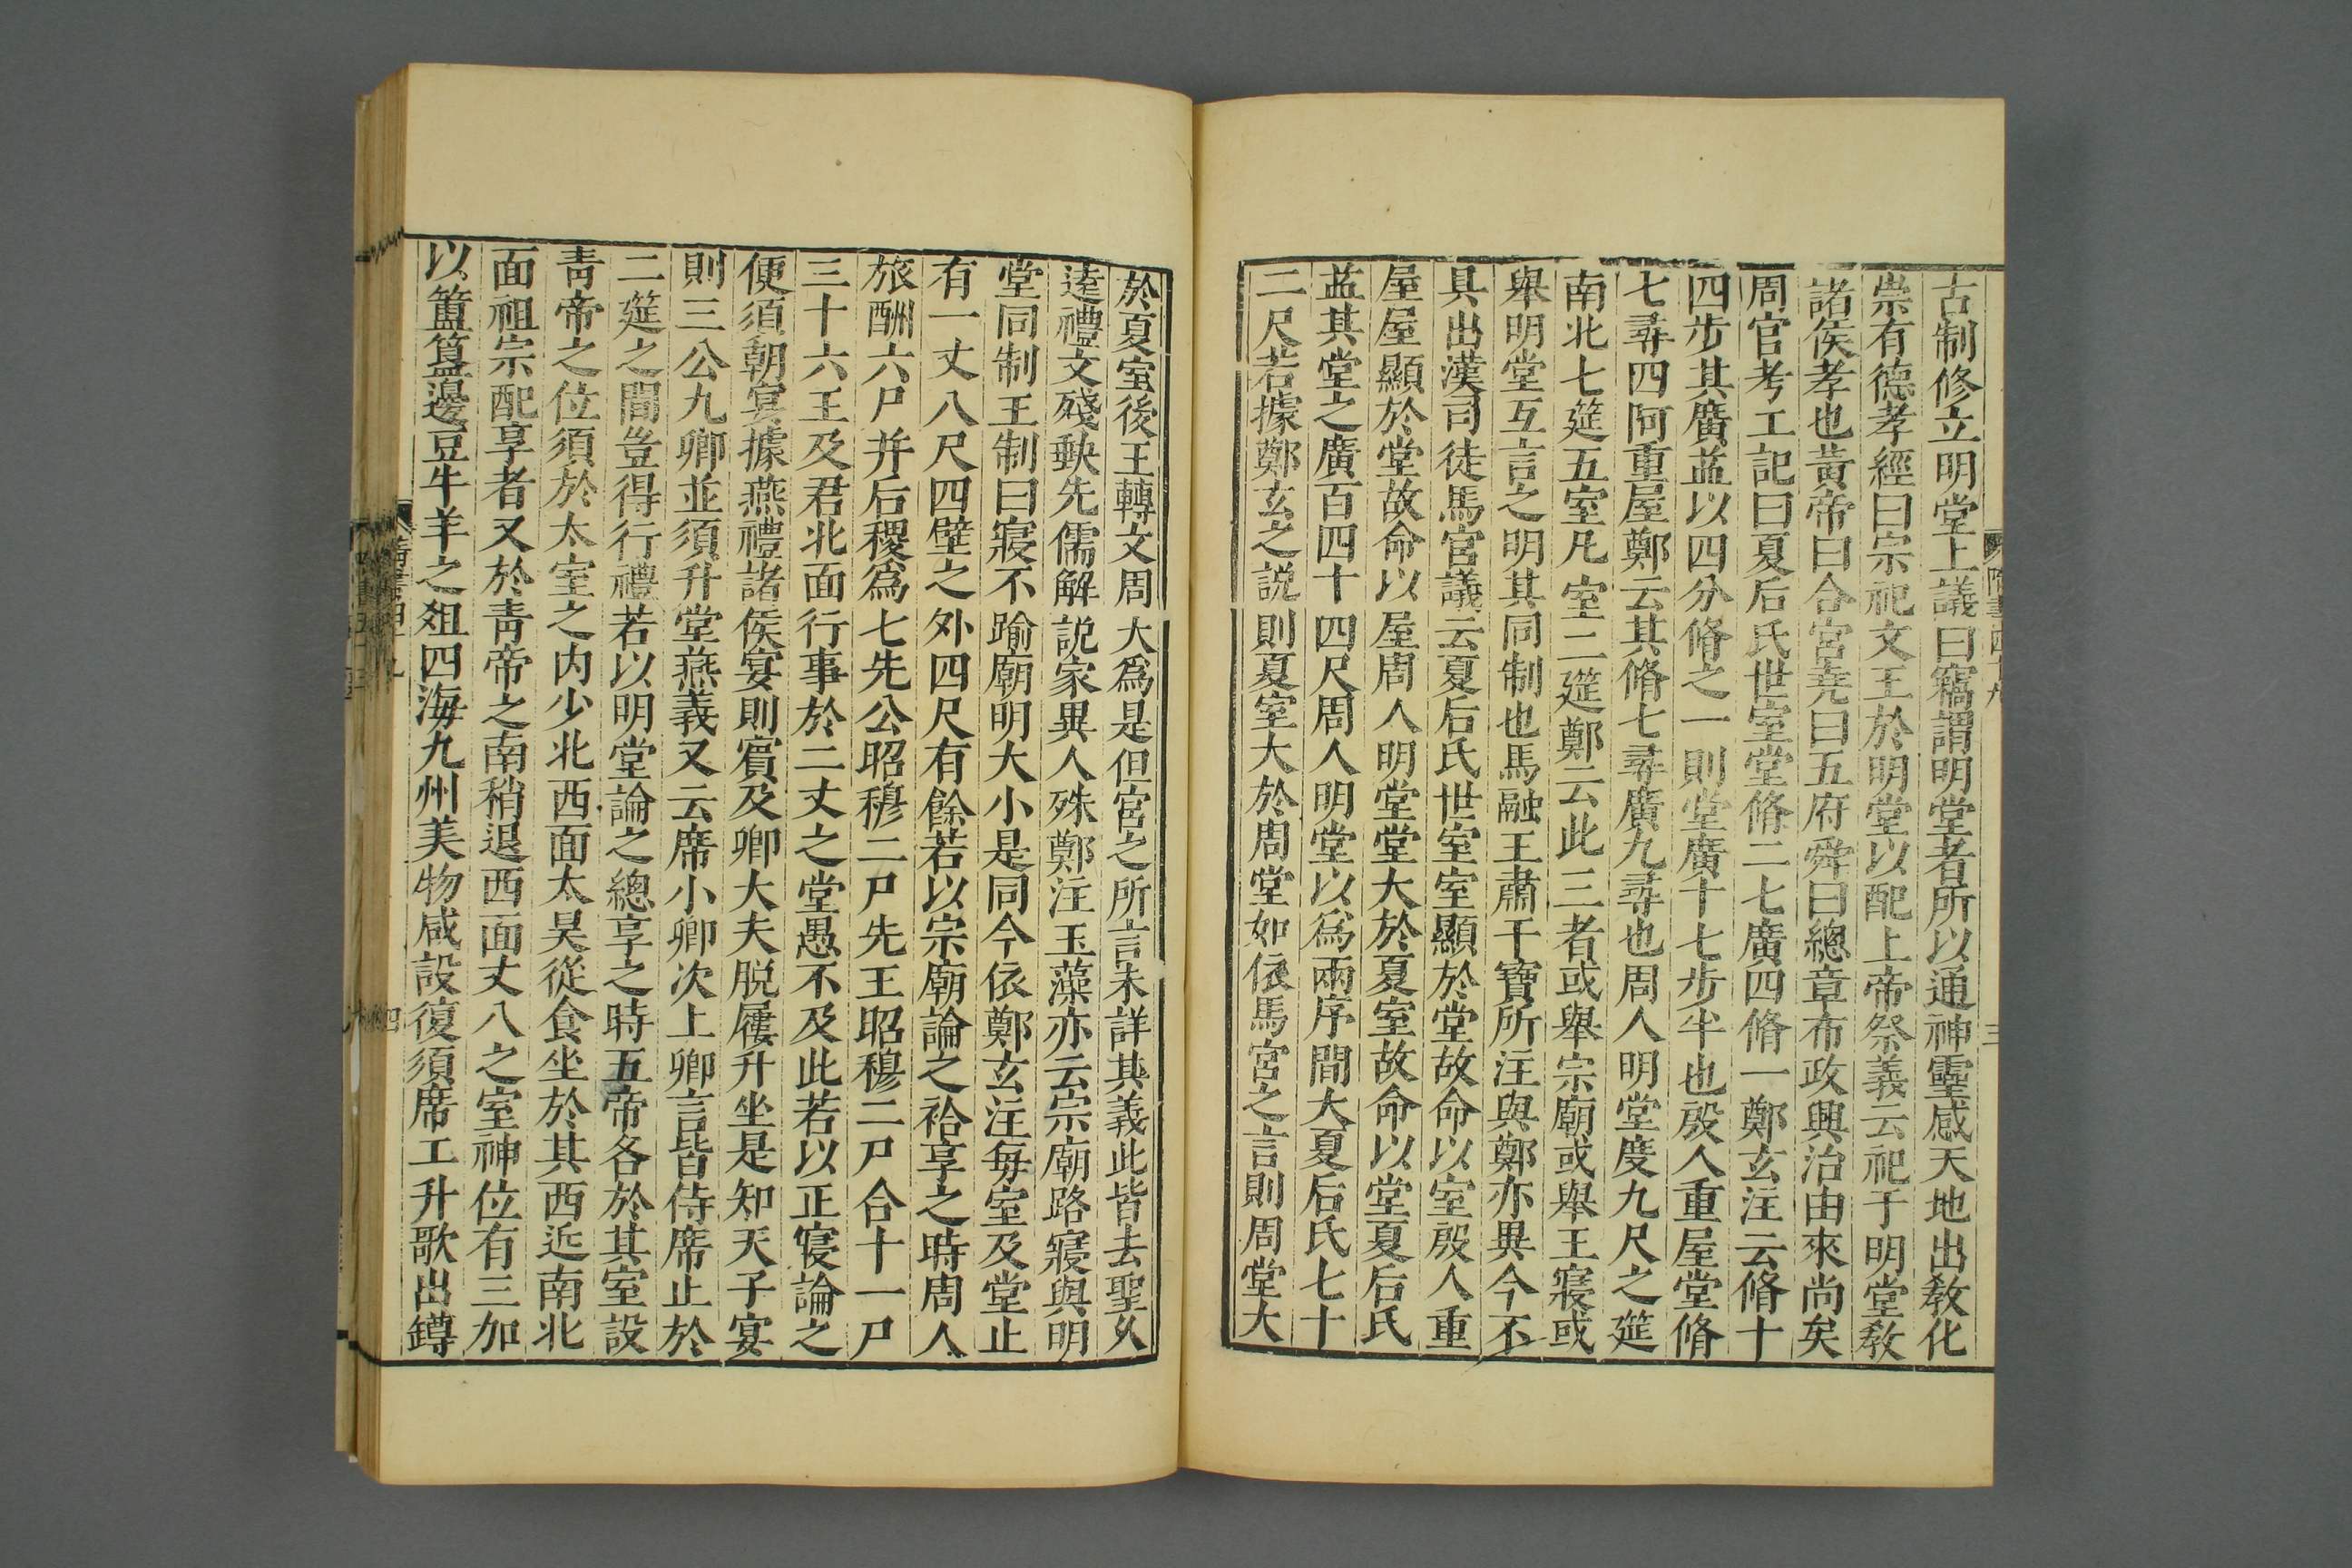 古制修立明堂上議曰竊謂明堂者所以通神靈感天地出敎化
崇有德孝經曰宗祀文王於明堂以配上帝祭義云祀于明堂敎
諸侯孝也黃帝曰合宮堯曰五府舜曰總章布政興治由來尚矣
周官考工記曰夏后氏世室堂脩二七廣四脩一鄭玄注云脩十
四步其廣益以四分脩之一則堂廣十七步半也殷人重屋堂脩
七尋四阿重屋鄭云其脩七尋廣九尋也周人明堂度九尺之筵
南北七筵五室凡室二筵鄭云此三者或舉宗廟或舉王寢或
舉明堂互言之明其同制也馬融王肅干寶所注與鄭亦異今不
具出漢司徒馬宮議云夏后氏世室室顯於堂故命以室殷人重
屋屋顯於堂故命以屋周人明堂堂大於夏室故命以堂夏后氏
益其堂之廣百四十四尺周人明堂以爲兩序間大夏后氏七十
二尺若據鄭玄之說則夏室大於周堂如依馬宮之言則周堂大
於夏室後王轉文周大爲是但宮之所言未詳其義此皆去聖久
遠禮文殘缺先儒解說家異人殊鄭注玉藻亦云宗廟路寢與明
堂同制王制曰寢不踰廟明大小是同今依鄭玄注每室及堂止
有一丈八尺四壁之外四尺有餘若以宗廟論之祫享之時周人
旅酬六尸并后稷爲七先公昭穆二尸先王昭穆二尸合十一尸
三十六王及君北面行事於二丈之堂愚不及此若以正寢論之
便須朝宴據燕禮諸侯宴則賓及卿大夫脫屨升坐是知天子宴
則三公九卿並須升堂燕義又云席小卿次上卿言皆侍席止於
二筵之間豈得行禮若以明堂論之總享之時五帝各於其室設
靑帝之位須於太室之內少北西面太昊從食坐於其西近南北
面祖宗配享者又於靑帝之南稍退西面丈八之室神位有三加
以簠簋邊豆牛羊之俎四海九州美物咸設復須席工升歌出鐏